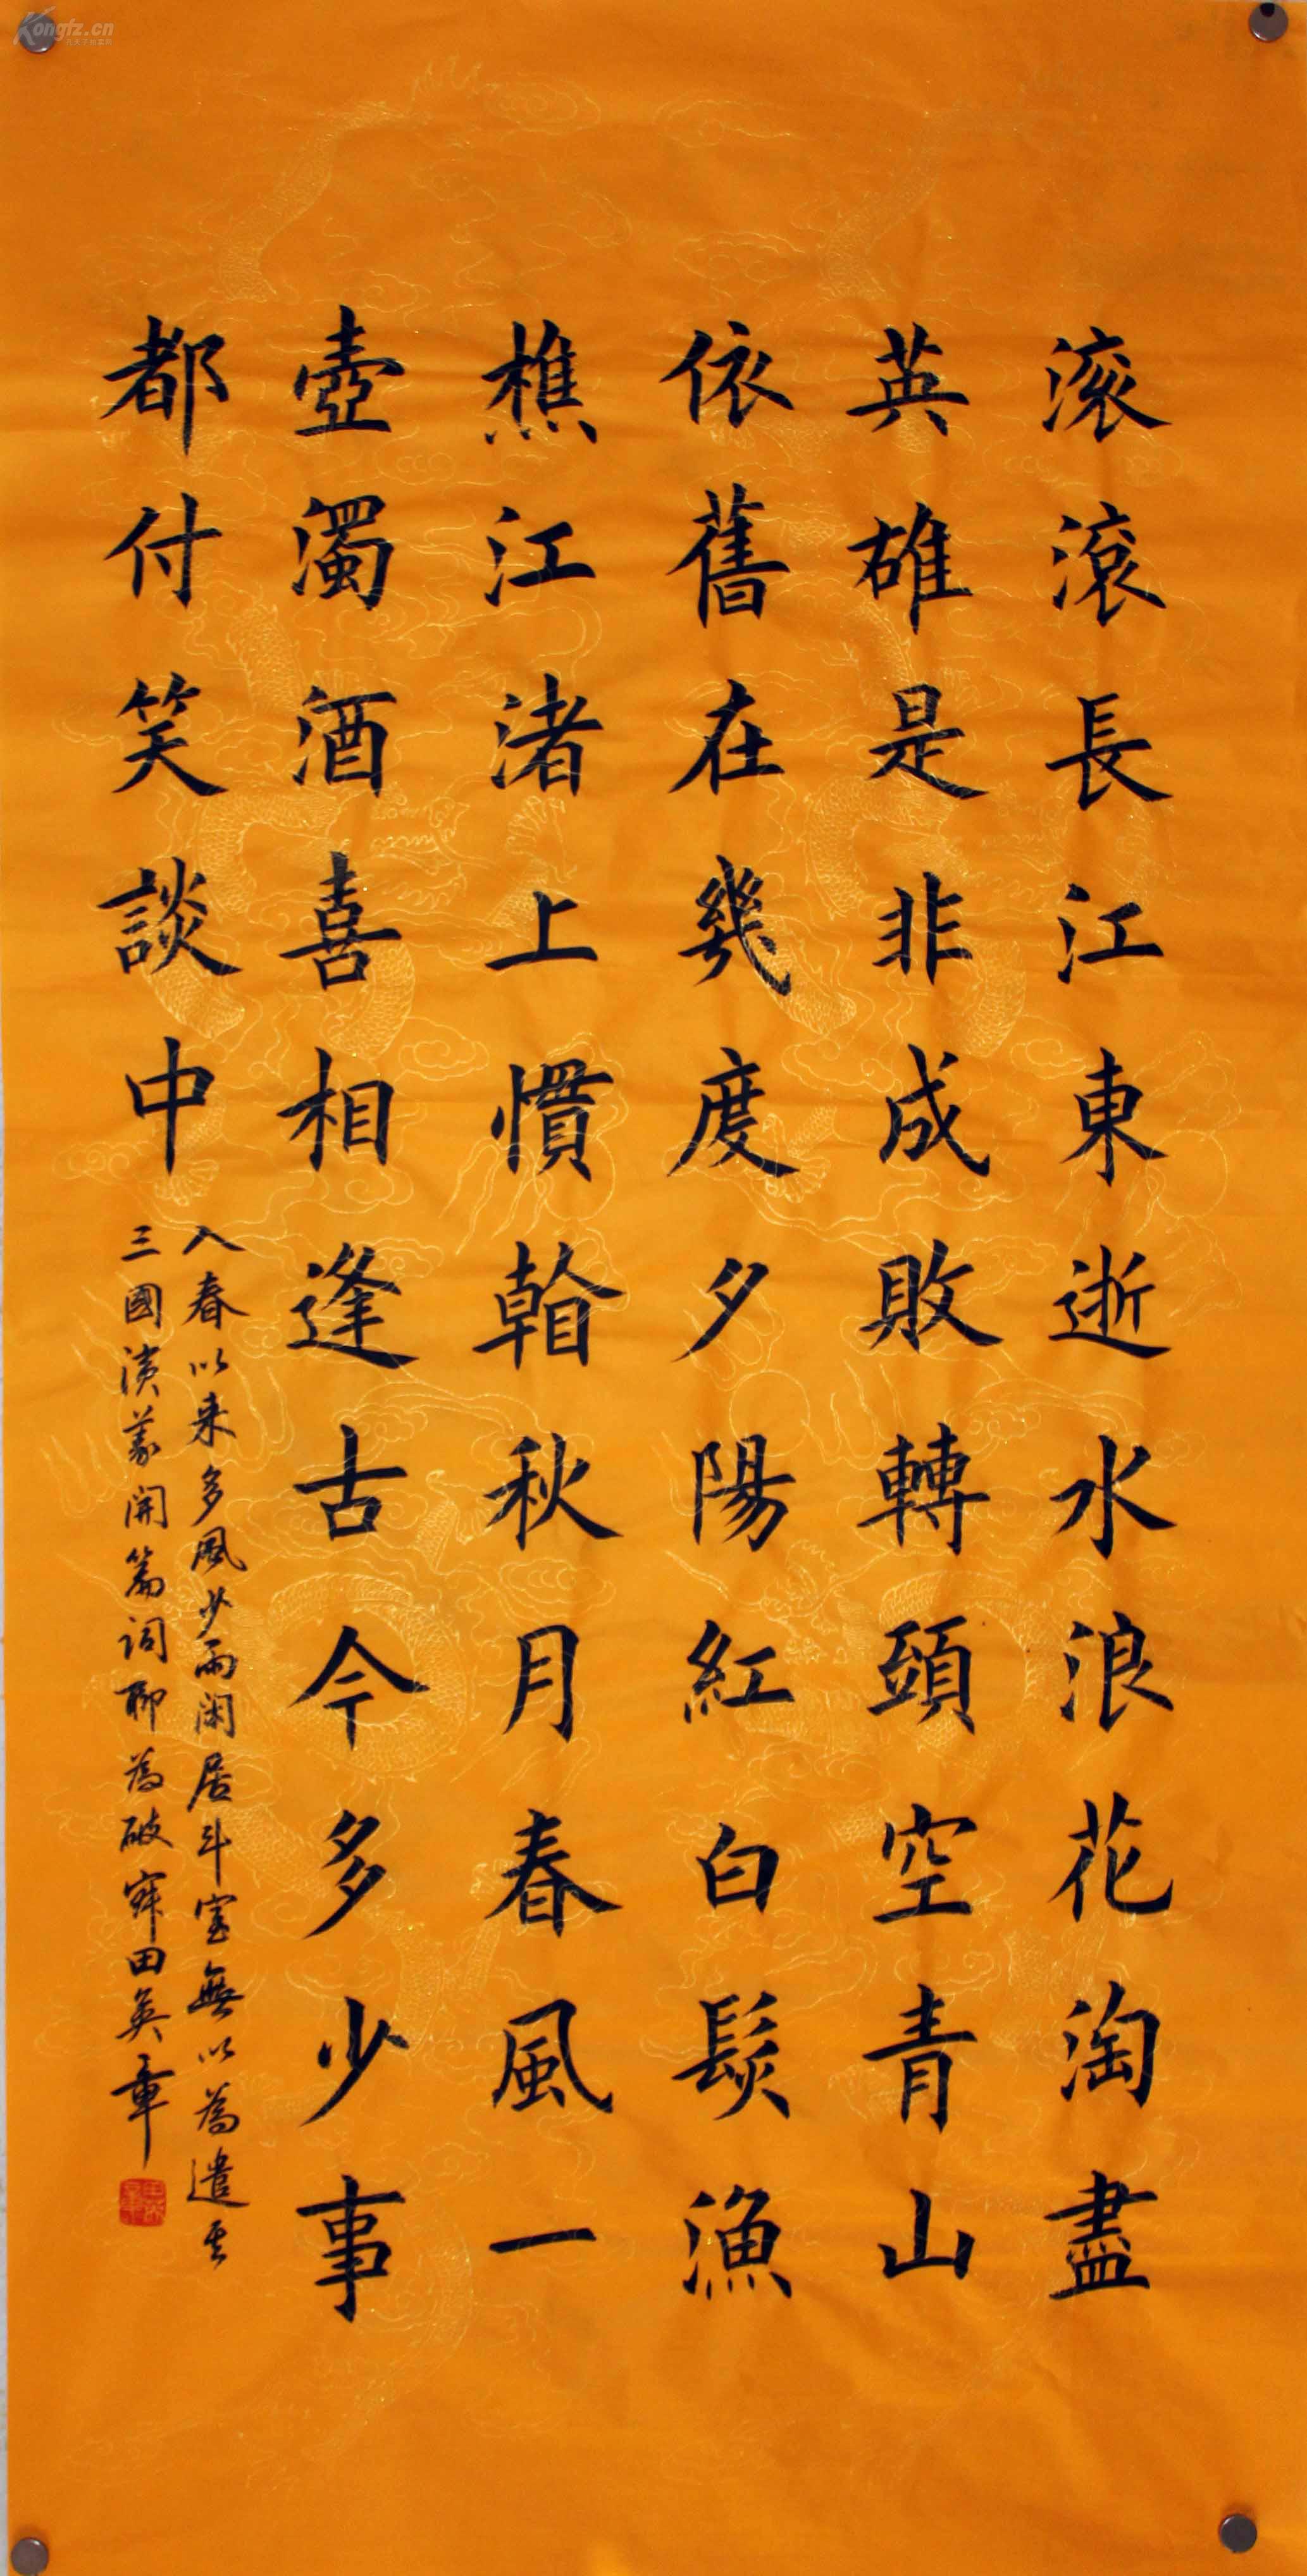 滚滾長江東逝水浪花淘盡
英雄是非成敗轉頭空青山
依舊在幾度夕陽紅白髮漁
樵江渚上慣看秋月春風一
壺濁酒喜相逢古今多少事
都付笑談中
入春以来多風少雨閑居斗室無以為遣書
三國演義開篇詞聊為破寂田英章
Kongfz.cn